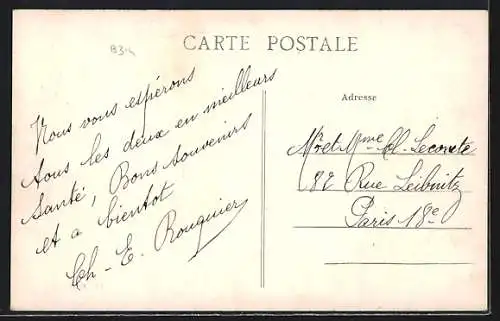 834
CARTE POSTALE
Nous vous espérons
tous les deux en meilleurs
santé, Bons souvenirs
et a bientot
Ch - E. Rouquier
Adresse
Mr et Mme Ch. Leconte
82 Rue Leibnitz
Paris 18e